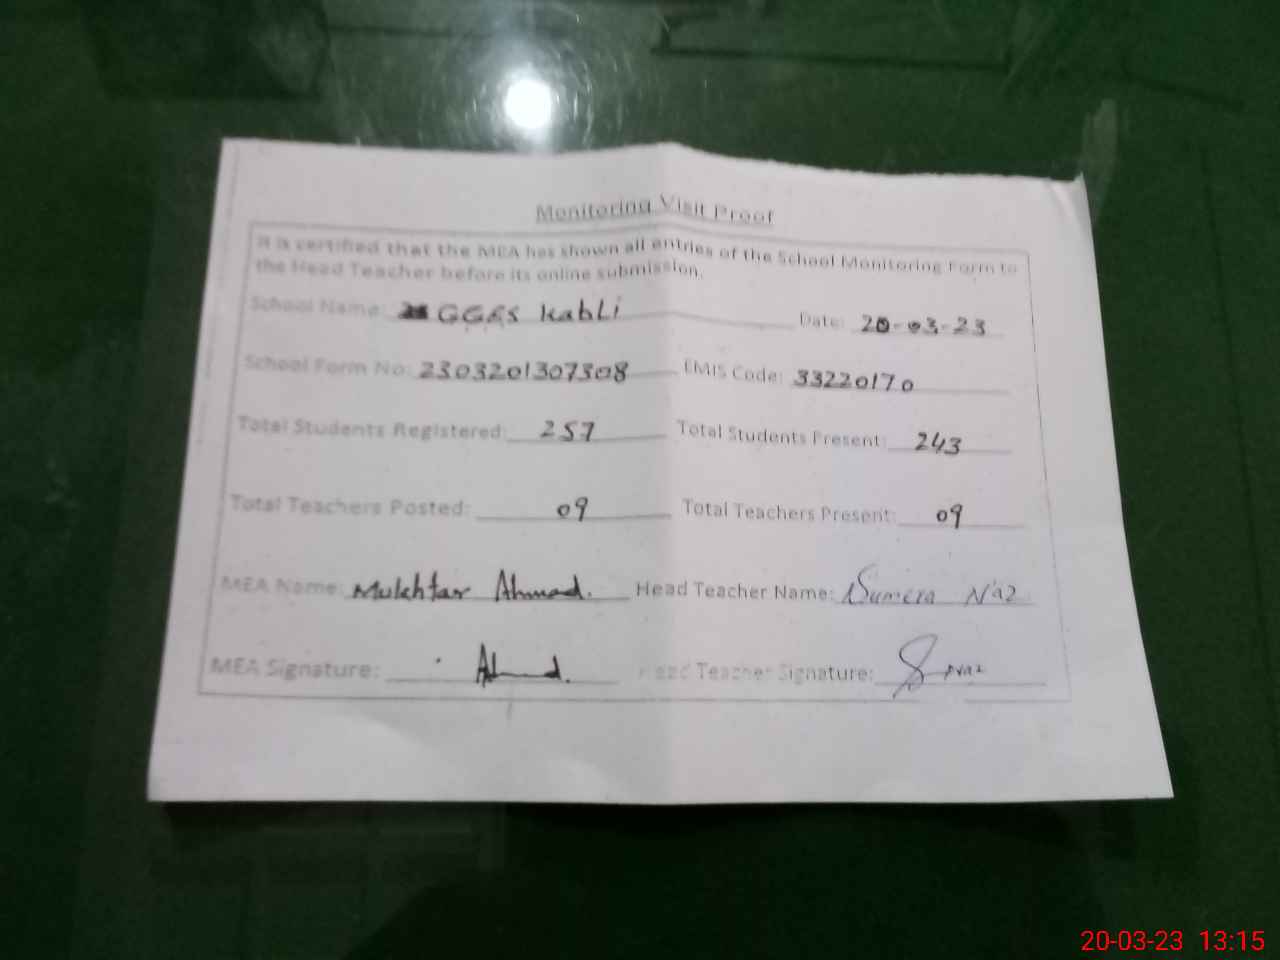 Monitoring Visit Proof
It is certified that the MEA has shown all entries of the School Monitoring Form to
the Head Teacher before its online submission.
School Name: GGES Kabli Date: 20-03-23
School Form No: 2303201307308 EMIS Code: 33220170
Total Students Registered: 257 Total Students Present: 243
Total Teachers Posted: 09 Total Teachers Present: 09
MEA Name: Mukhtar Ahmad. Head Teacher Name: Sumera Naz
MEA Signature: Head Teacher Signature:
20-03-23 13:15